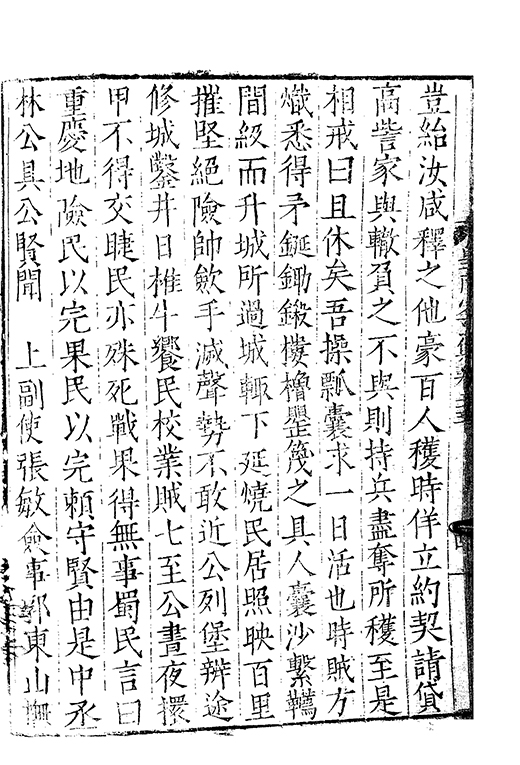 豈紿汝咸釋之他豪百人穫時佯立約契請貸
高訾家與輙負之不與則持兵盡奪所穫至是
相戒曰且休矣吾操瓢囊求一日活也時賊方
熾悉得矛鋋鋤鍛摟櫓壆篾之具人囊沙繫韉
間級而升城所過城輙下延燒民居照映百里
摧堅絕險帥斂手滅聲勢不敢近公列堡辨途
修城鑿井日椎牛饗民校業賊七至公晝夜擐
甲不得交睫民亦殊死戰果得無事蜀民言曰
重慶地險民以完果民以完頼守賢由是中丞
林公具公賢聞　上副使張敏僉事郟東山撫